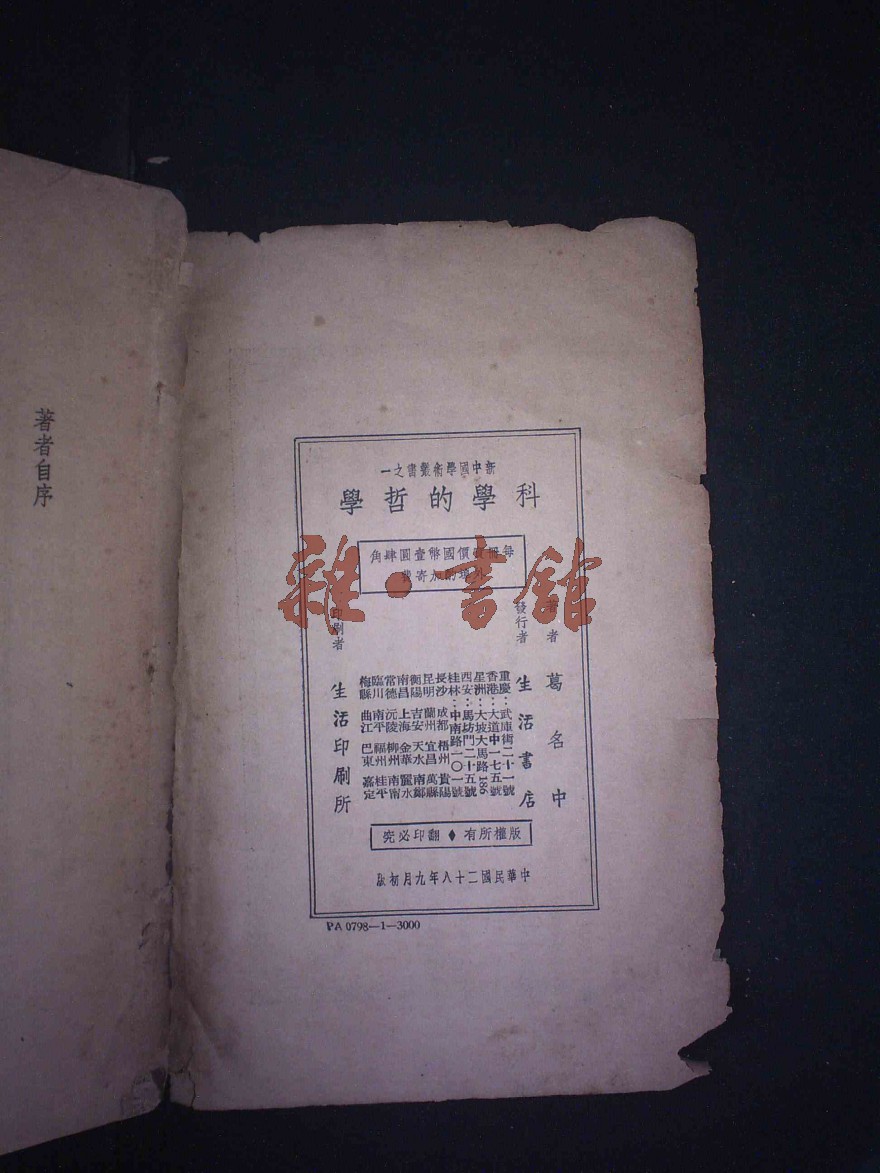 新中國學術叢書之一
科學的哲學
每冊實價國幣壹圓肆角
外埠酌加寄費
著者
葛名中
發行者
生活書店
重慶：武庫街二十一號
香港：大道中一七五號
星洲：大坡大馬路186號
西安：馬坊門二十五號
桂林：中南路一〇一號
長沙 成都 梧州 貴陽
昆明 蘭州 宜昌 萬縣
衡陽 吉安 天水 南鄭
南昌 上海 金華 麗水
常德 沅陵 柳州 南平
臨川 南平 福州 桂平
梅縣 曲江 巴東 嘉定
印刷者
生活印刷所
版權所有♦翻印必究
中華民國二十八年九月初版
PA 0798—1—3000
著者自序
雜·書館